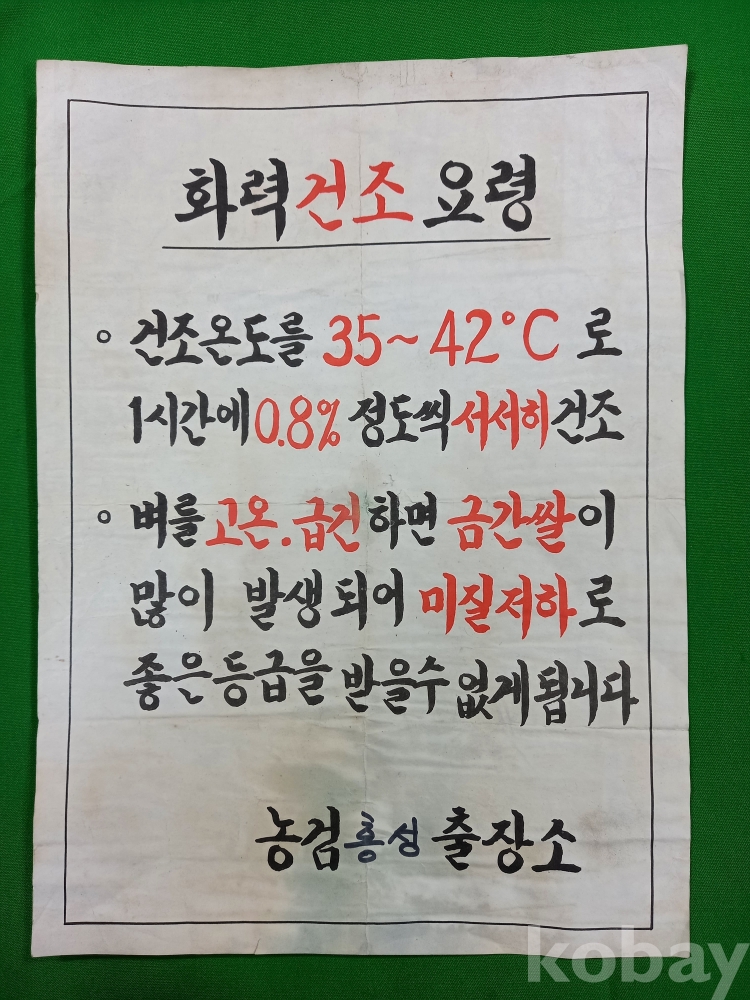 화력건조 요령
○ 건조온도를 35~42°C 로
1시간에 0.8% 정도씩 서서히 건조
○ 벼를 고온.급건하면 금간쌀이
많이 발생되어 미질저하로
좋은등급을 받을수 없게됩니다
농검홍성출장소
kobay